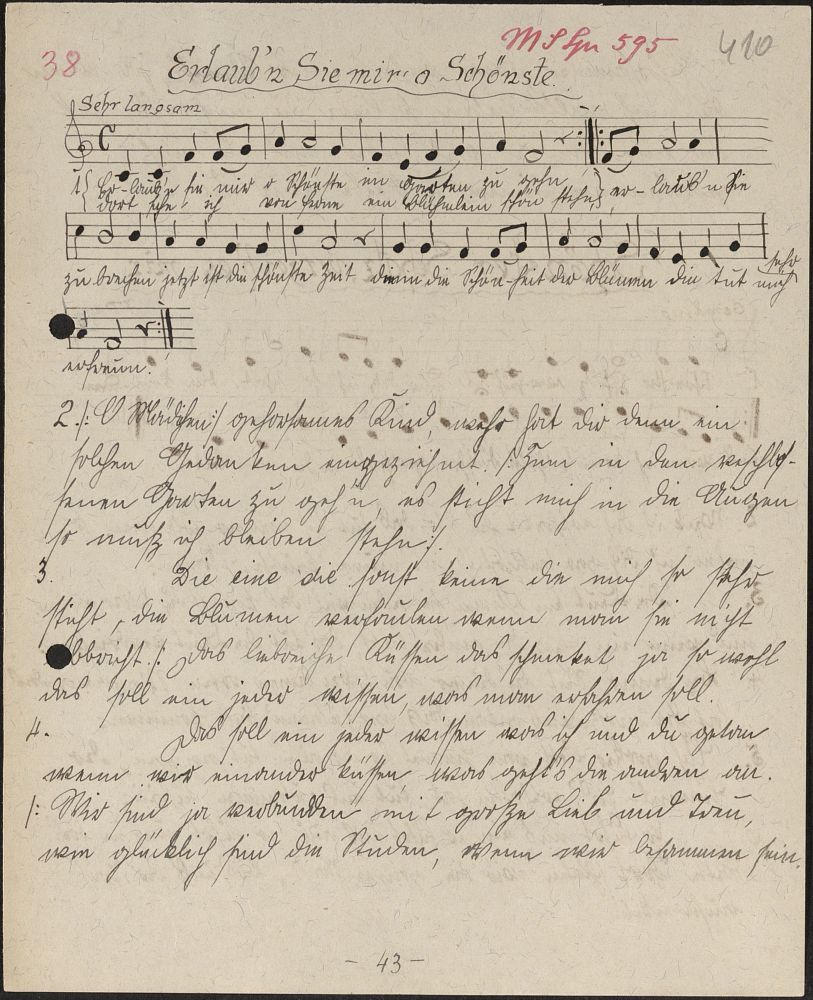 38
MS Lpr 595
410
Erlaub'n Sie mir o Schönste.
Sehr langsam
1. Er-laub'n sie mir o Schönste im Garten zu gehn, er-laub'n Sie
dort seh ich von ferne ein Blühmlein schön stehn,
zu brechen jetzt ist die schönste Zeit denn die Schön-heit der Blümen die tut mich sehr
erfreun.
2. /: O Mädchen :/ gehorsames Kind, wehr hat dir denn ein
solchen Gedanken eingeziehmt. /: Zum in den verschlos-
senen Garten zu geh'n, es sticht mich in die Augen
so muß ich bleiben stehn :/.
3. Die eine die sonst keine die mich so sehr
sticht, die Blumen verfaulen wenn man sie nicht
abbricht. /: Das liebreiche Küssen das schmeket ja so wohl
das soll ein jeder wissen, was man erfahren soll.
4. Das soll ein jeder wissen was ich und du getan
wenn wir einander küssen, was geht's die andren an.
/: Wir sind ja verbunden mit große Lieb und Treu,
wie glücklich sind die Studen, wenn wir besammen sein.
- 43 -